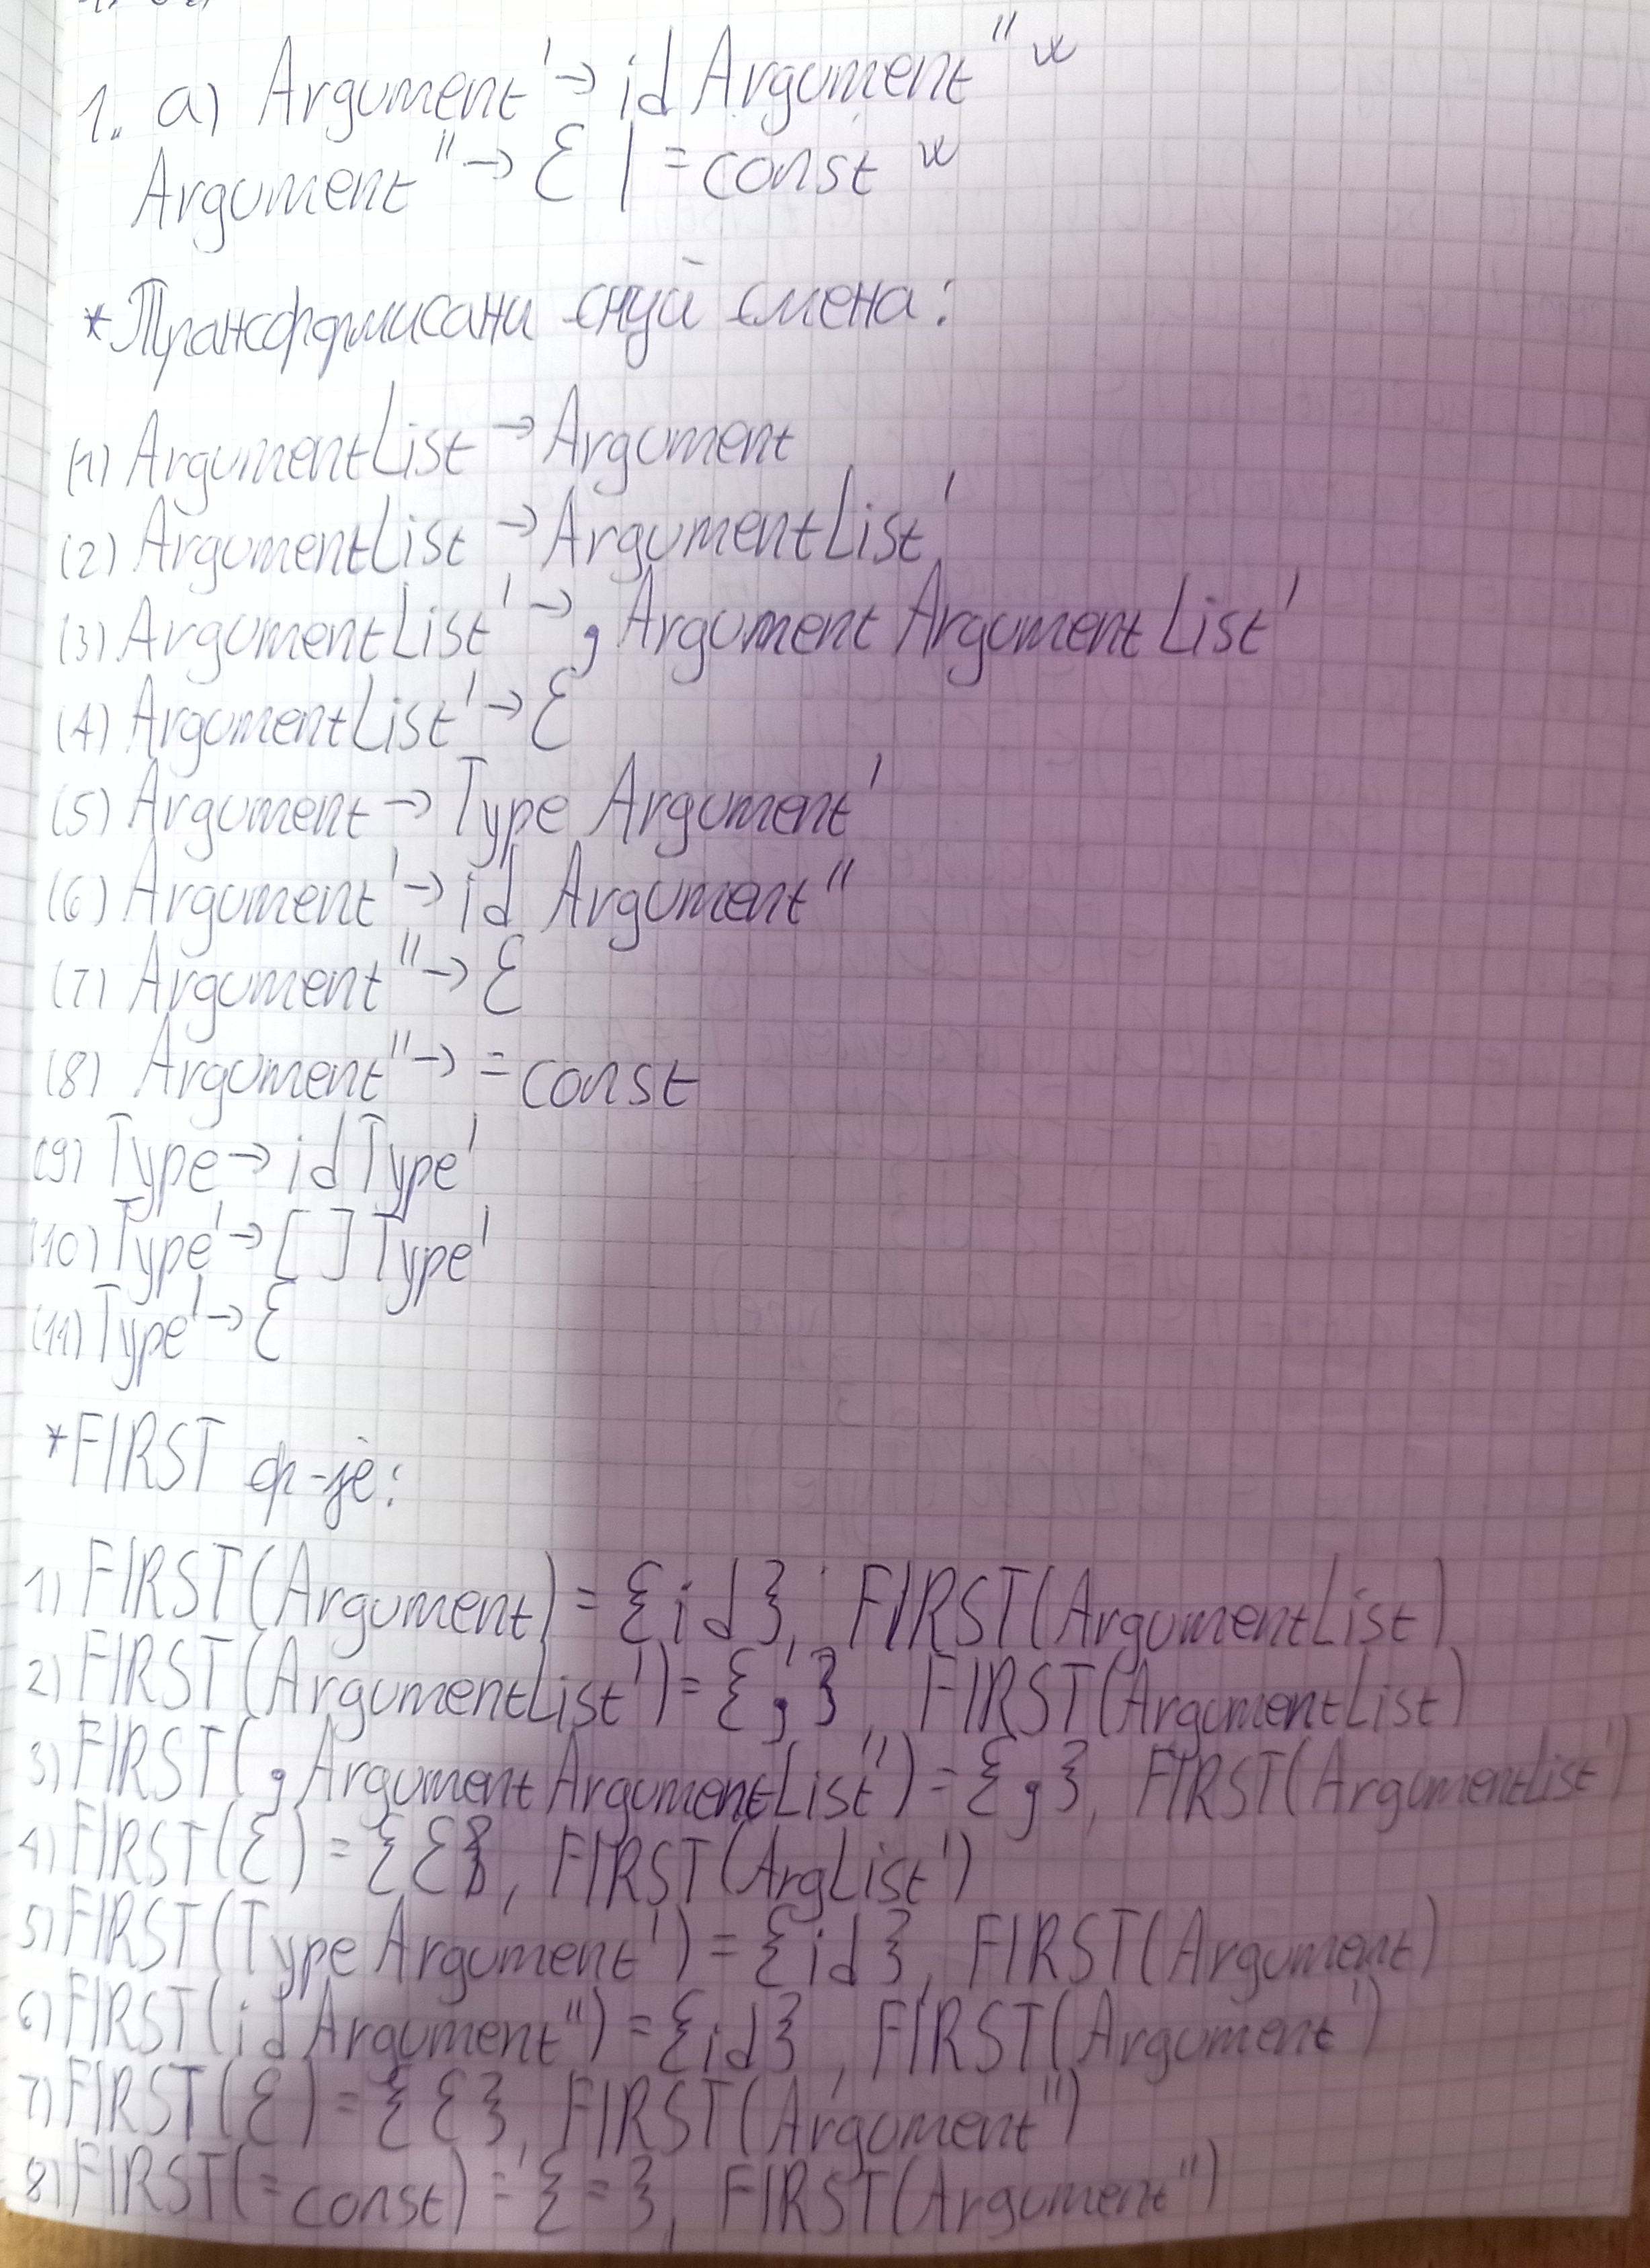 1. a) Argument' → id Argument"
Argument" → ε | = const
*Трансформисани скуп смена:
(1) ArgumentList → Argument
(2) ArgumentList → ArgumentList'
(3) ArgumentList' → , Argument ArgumentList'
(4) ArgumentList' → ε
(5) Argument → Type Argument'
(6) Argument' → id Argument"
(7) Argument" → ε
(8) Argument" → = const
(9) Type → id Type'
(10) Type' → [ ] Type'
(11) Type' → ε
*FIRST ф-је:
1) FIRST(Argument) = {id}, FIRST(ArgumentList)
2) FIRST(ArgumentList') = {,}, FIRST(ArgumentList)
3) FIRST(, Argument ArgumentList") = {,}, FIRST(ArgumentList')
4) FIRST(ε) = {ε}, FIRST(ArgList')
5) FIRST(Type Argument') = {id}, FIRST(Argument)
6) FIRST(id Argument") = {id}, FIRST(Argument')
7) FIRST(ε) = {ε}, FIRST(Argument")
8) FIRST(= const) = {=}, FIRST(Argument")